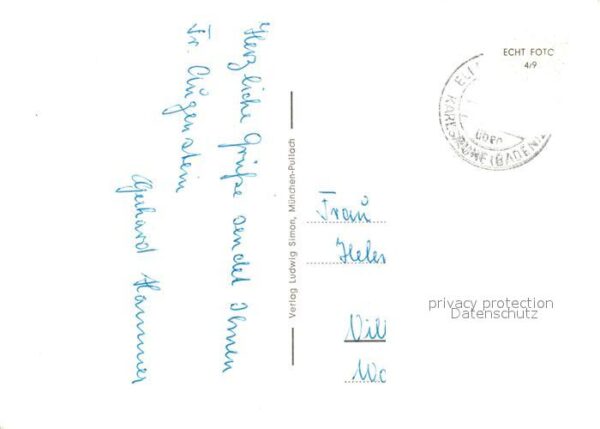 Herzliche Grüße sendet Ihnen
Fr. Augenstein
Gerhard Hammer
Verlag Ludwig Simon, München-Pullach
ECHT FOTO
4/9
KARLSRUHE (BADEN)
Frau
Helen
Vill
Wo
privacy protection
Datenschutz